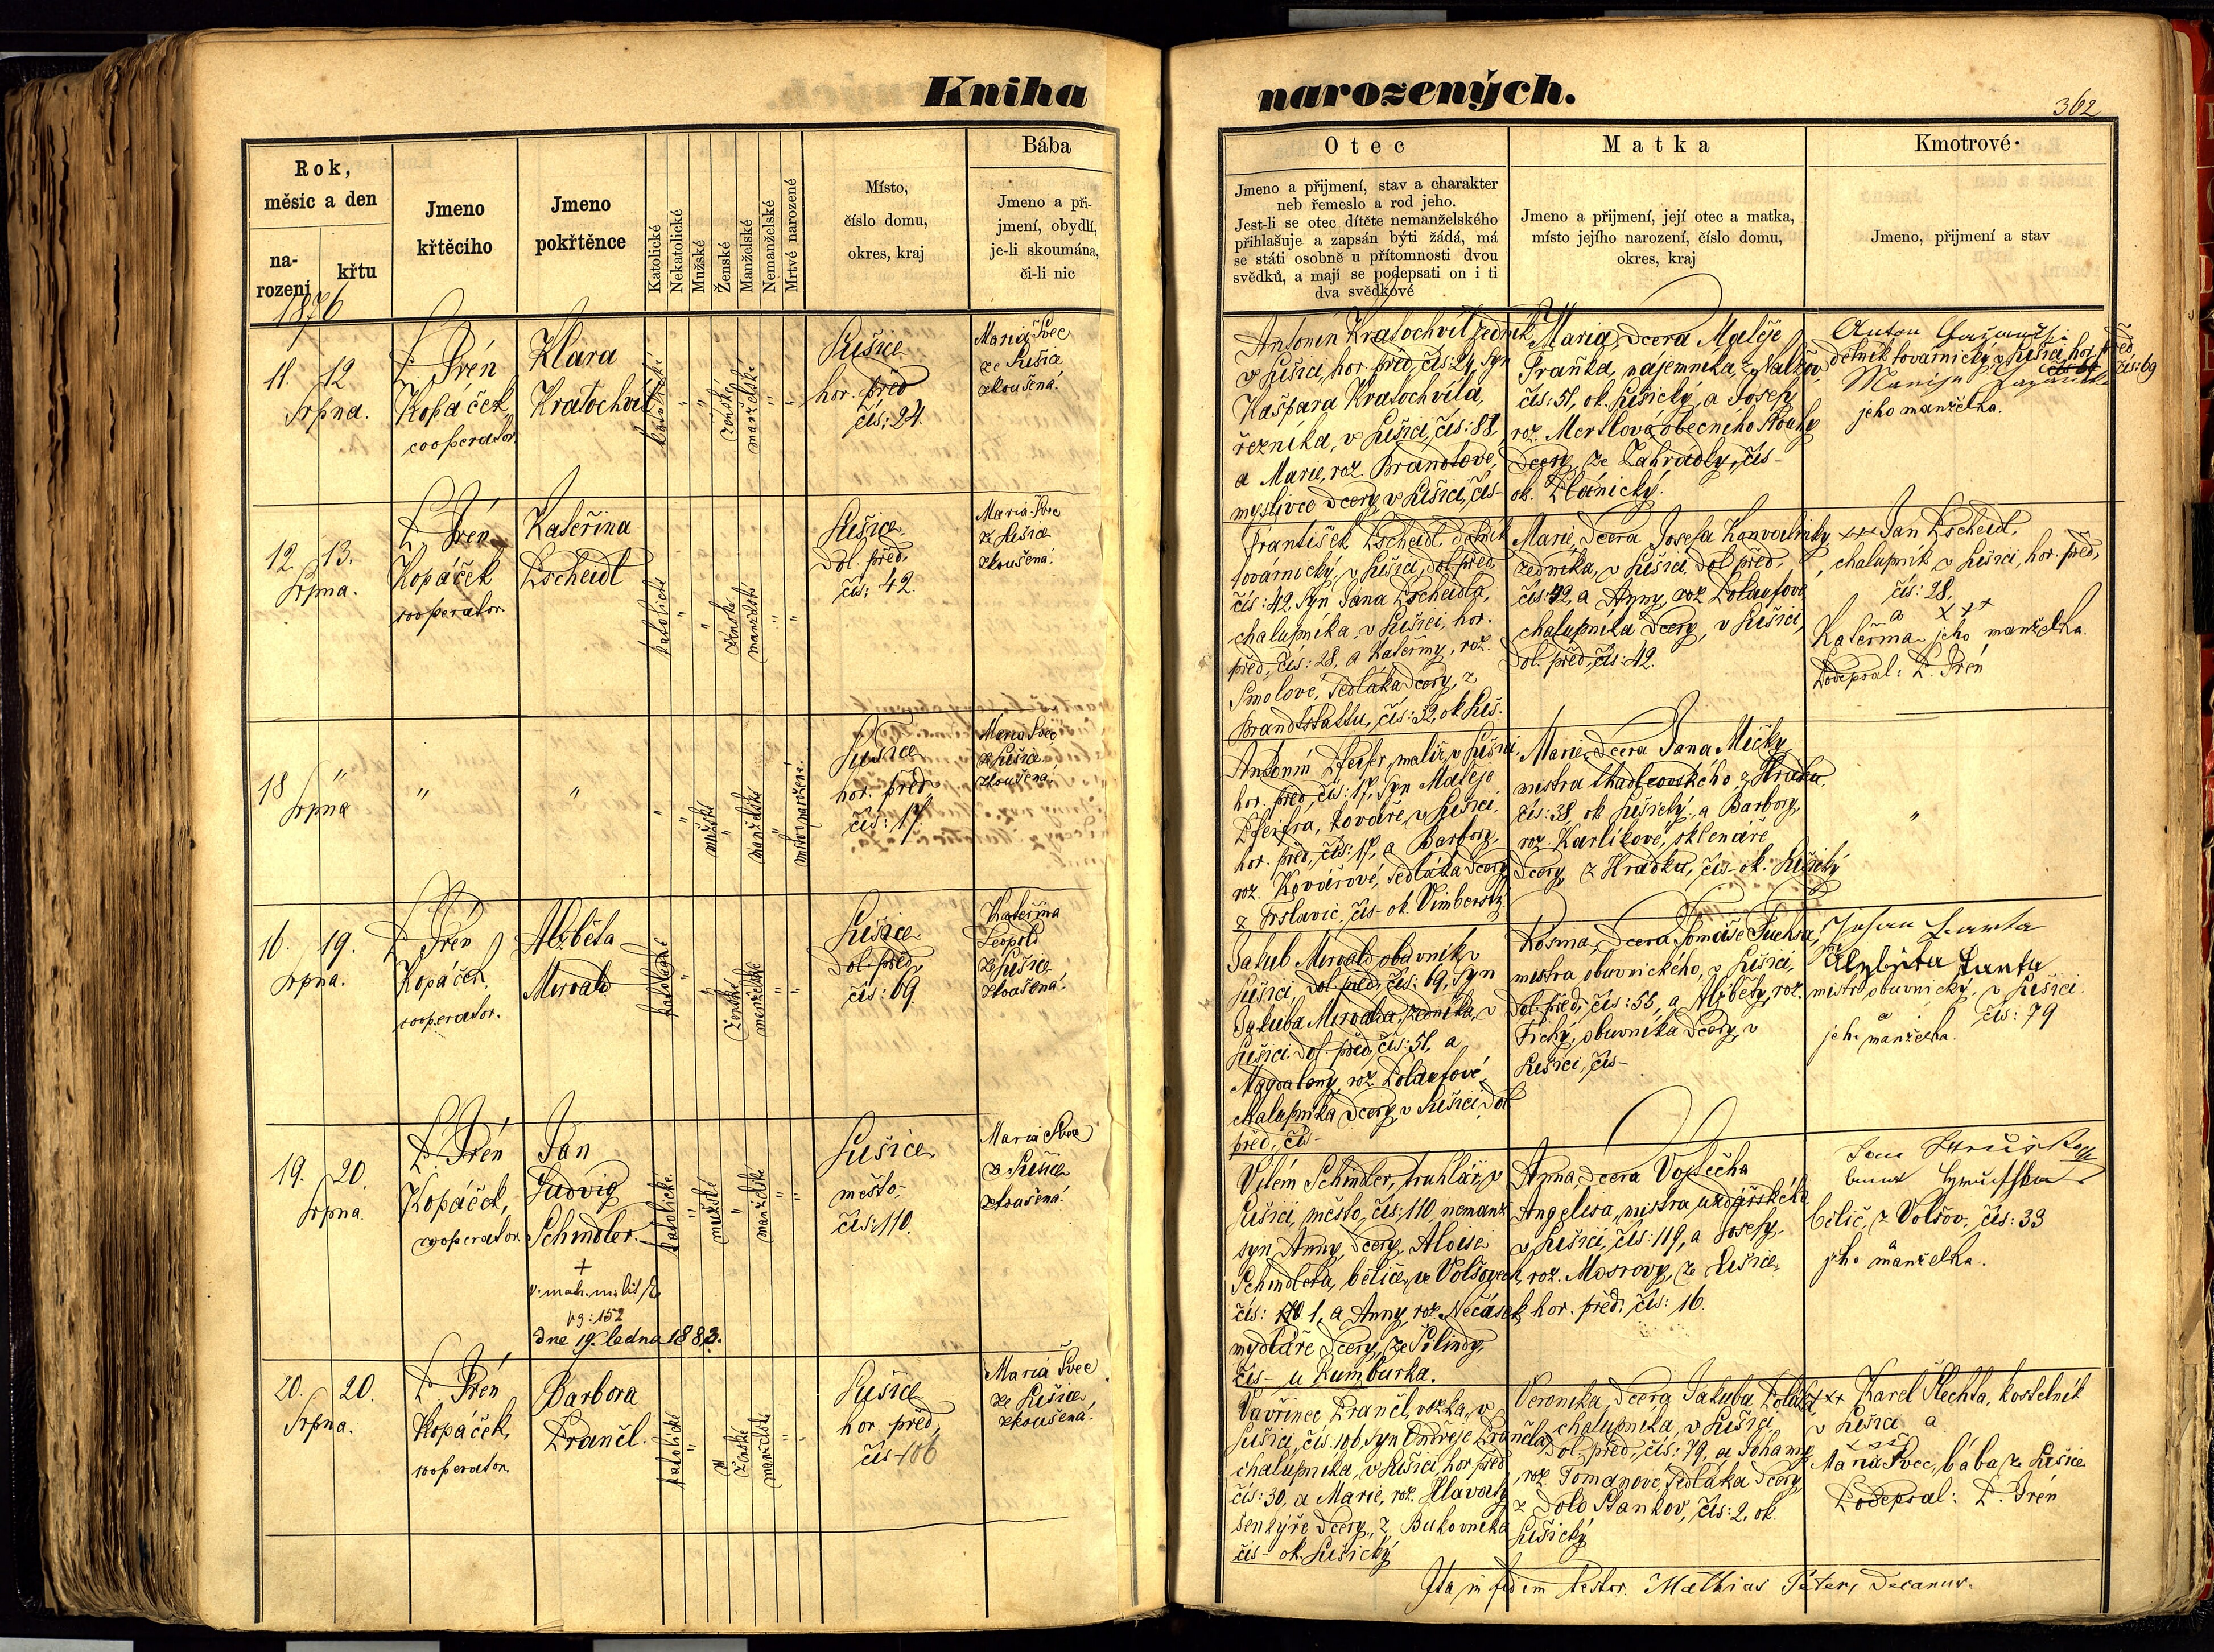 Kniha
narozených.
362
Rok,
měsíc a den
na-
rození
křtu
1876
Jmeno
křtěciho
Jmeno
pokřtěnce
Katolické
Nekatolické
Mužské
Ženské
Manželské
Nemanželské
Mrtvé narozené
Místo,
číslo domu,
okres, kraj
Bába
Jmeno a při-
jmení, obydlí,
je-li skoumána,
či-li nic
Otec
Jmeno a přijmení, stav a charakter
neb řemeslo a rod jeho.
Jest-li se otec dítěte nemanželského
přihlašuje a zapsán býti žádá, má
se státi osobně u přítomnosti dvou
svědků, a mají se podepsati on i ti
dva svědkové
Matka
Jmeno a přijmení, její otec a matka,
místo jejího narození, číslo domu,
okres, kraj
Kmotrové
Jmeno, přijmení a stav
11. 12
Srpna.
P. Irén
Kopáček,
cooperator
Klara
Kratochvíl
katolické
"
"
ženské
manželské
"
"
Sušice
hor. před
čís: 24.
Maria Švec
ze Sušice
zkoušená.
Antonín Kratochvíl, zedník
v Sušici, hor. před, čís: 24, syn
Kašpara Kratochvíla,
řezníka, v Sušici, čís: 88,
a Marie, roz. Brandlové,
myslivce dcery v Sušici, čís-
Maria, dcera Matěje
Traňka, nájemníka, z Nalžov,
čís: 51, ok. Sušický, a Josefy
roz. Mertlová, obecního
dcery, ze Zahrádky, čís-
ok. Plánický.
Anton
dělník továrnický v Sušici, hor. před
čís: 69
jeho manželka.
12. 13.
Srpna.
P. Irén
Kopáček
cooperator.
Kateřina
Pscheidl
katolické
"
"
ženské
manželské
"
"
Sušice
dol. před,
čís: 42.
Maria Švec
ze Sušice
zkoušená.
František Pscheidl, dělník
továrnický, v Sušici, dol. před,
čís: 42, syn Jana Pscheidla,
chalupníka, v Sušici, hor.
před, čís: 28, a Kateřiny, roz.
Smolové, sedláka dcery, z
Brandstattu, čís: 32, ok. Suš.
Marie, dcera Josefa Konvalinky,
zedníka, v Sušici, dol. před,
čís: 42, a Anny, roz Polaufové
chalupníka dcery, v Sušici,
dol. před, čís: 42.
xxx Jan Pscheidl,
chalupník v Sušici, hor. před,
čís: 28,
a xxx
Kateřina jeho manželka.
Podepsal: P. Irén
18 "
Srpna
"
"
"
"
mužské
"
manželské
"
mrtvě narozené.
Sušice
hor. před,
čís: 17.
Maria Švec
ze Sušice
zkoušená.
Antonín Pfeifer, malíř, v Sušici,
hor. před, čís: 17, syn Matěje
Pfeifra, kováře, v Sušici,
hor. před, čís: 17, a Barbory,
roz. Kovářové, sedláka dcery
z Vrslavic, čís- ok. Vimberský
Marie, dcera Jana Mičky
mistra tkadlcovského, z Hrádku,
čís: 38, ok Sušický, a Barbory,
roz. Karlíkové, sklenáře
dcery, z Hrádku, čís- ok. Sušický
"
16. 19.
Srpna.
P. Irén
Kopáček,
cooperator.
Alžběta
Mirvald
katolické
"
"
ženské
manželské
"
"
Sušice
dol. před,
čís: 69.
Kateřina
Leopold
ze Sušice
zkoušená.
Jakub Mirvald, obuvník v
Sušici, dol. před, čís: 69, syn
Jakuba Mirvalda, zedníka, v
Sušici, dol. před, čís: 51, a
Magdaleny, roz. Polaufové,
chalupníka dcery, v Sušici, dol
před, čís-
Rosina, dcera Tomáše Fuchsa,
mistra obuvnického, v Sušici,
dol. před, čís: 55, a Alžběty, roz.
Tiché, obuvníka dcery, v
Sušici, čís-
Johan
mistr obuvnický, v Sušici
čís: 79
a
jeho manželka.
19. 20.
Srpna.
P. Irén
Kopáček,
cooperator.
Jan
Ludvig
Schindler.
+
dne 19. ledna 1883.
katolické
"
mužské
"
manželské
"
"
Sušice
město,
čís: 110.
Maria Švec
ze Sušice
zkoušená.
Vilém Schindler, truhlář, v
Sušici, město, čís: 110 nemanž
syn Anny, dcery Aloise
Schindlera, běliče, ve Volšovech,
čís: 1, a Anny, roz. Nečásek
mydláře dcery, ze Šilindy,
čís- u Rumburka.
Anna, dcera Vojtěcha
Angelisa, mistra uzdářského
v Sušici, čís: 119, a Josefy,
roz. Mosrovy, ze Sušice,
hor. před, čís: 16.
bělič, z Volšov, čís: 33
a
jeho manželka.
20. 20.
Srpna.
P. Irén
Kopáček,
cooperator.
Barbora
Prančl.
katolické
"
"
ženské
manželské
"
"
Sušice
hor. před,
čís 106
Maria Švec
ze Sušice
zkoušená.
Vavřinec Prančl, vozka, v
Sušici, čís: 106, syn Ondřeje Prančla,
chalupníka, v Sušici, hor. před
čís: 30, a Marie, roz. Hlavatý
šenkýře dcery, z Bukovníka
čís- ok. Sušický
Veronika, dcera Jakuba
chalupníka, v Sušici
dol. před, čís: 79, a Johany,
roz. Tomanové, sedláka dcery,
z Dolo Staňkov, čís: 2, ok.
Sušický
xxx Karel Šlechta, kostelník
v Sušici a
xxx
Maria Švec, bába ze Sušice
Podepsal: P. Irén
Ita in fidem testor. Mathias Peter, Decanus.